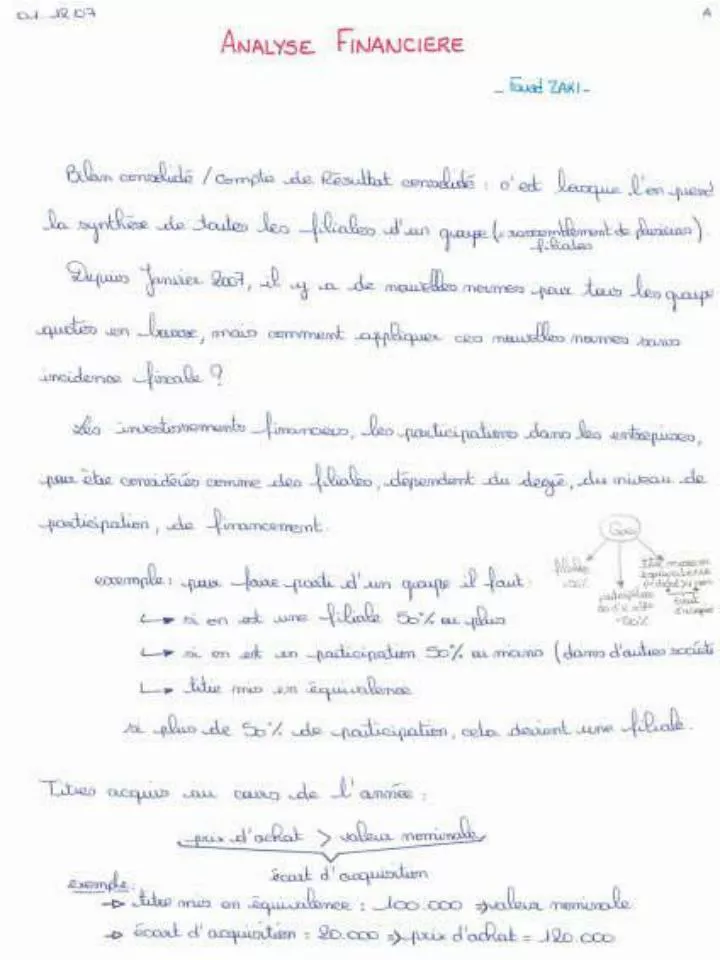 A
ANALYSE FINANCIERE
- Fouad ZAKI -
Bilan consolidé / compte de Résultat consolidé : c'est lorsque l'on prend
la synthèse de toutes les filiales d'un groupe (= rassemblement de plusieurs)
filiales
Depuis Janvier 2007, il y a de nouvelles normes pour tous les groupe
quotés en bourse, mais comment appliquer ces nouvelles normes sans
incidence fiscale ?
Les investissements financiers, les participations dans les entreprises,
pour être considérés comme des filiales, dépendent du degré, du niveau de
participation, de financement.
exemple : pour faire parti d'un groupe il faut :
↳ si on est une filiale 50% ou plus
↳ si on est en participation 50% ou moins (dans d'autres société
↳ titre mis en équivalence
si plus de 50% de participation, cela devient une filiale.
filiales
titre mis en
équivalence
écart
-50%
Titres acquis au cours de l'année :
prix d'achat > valeur nominale
écart d'acquisition
exemple :
→ titre mis en équivalence : 100.000 => valeur nominale
→ écart d'acquisition = 20.000 => prix d'achat = 120.000